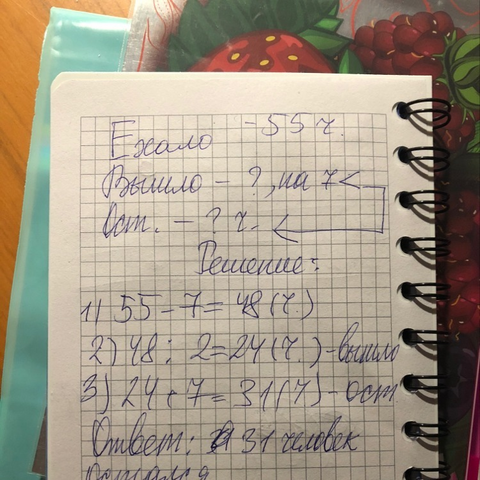 Ехало - 55 ч.
Вышло - ?, на 7 <
Ост. - ? ч.
Решение:
1) 55 - 7 = 48 (ч.)
2) 48 : 2 = 24 (ч.) - вышло
3) 24 + 7 = 31 (ч) - ост
Ответ: 31 человек
остался